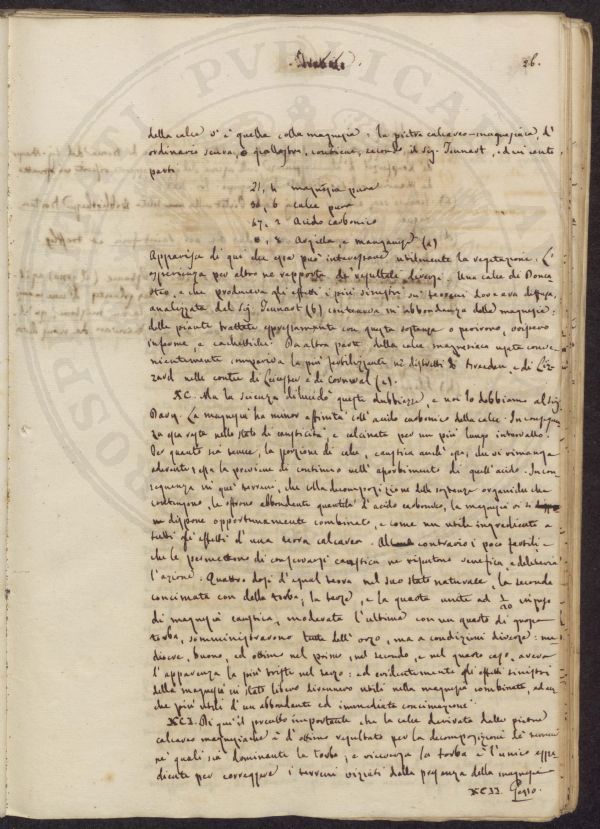 36.
della calce v'è quella colla magnesia: la pietra calcareo-magnesiaca, d'
ordinario scura, o giallastra, contiene, secondo il Sig. Tennant, ed in cento
parti
21, 4 magnesia pura
56 calce pura
47, 2 Acido carbonico
0, 8 Argilla, e manganese (a)
Apparisce di qui che essa può interessare utilmente la vegetazione. L'
esperienza per altro ne rapporta de' resultati diversi. Una calce di
e che produceva gli effetti i più sinistri su' terreni dov'era diffusa,
analizzata dal Sig. Tennant (b) conteneva in abbondanza della magnesia:
delle piante trattate espressamente con questa sostanza o perirono, o
inferme, e cachettiche. D'altra parte della calce magnesiaca usata conve-
nientemente compariva la più fertilizzante ne' distretti di e di Liz-
zard nelle contee di e di Cornwal (c).
XC. Ma la scienza dilucidò queste dubbiezze, e noi lo dobbiamo al Sig.
Davy. La magnesia ha minor affinità coll'acido carbonico della calce. In conseguen-
za essa resta nello stato di causticità, e calcinata per un più lungo intervallo.
Per quanto sia tenue, la porzione di calce, caustica anch'essa, che vi rimanga
aderente essa la previene di continuo nell'assorbimento di quell'acido. In con-
seguenza in que' terreni, che colla decomposizione delle sostanze organiche che
contengono, le offrono abbondante quantità d'acido carbonico, la magnesia vi si
ne dispone opportunamente combinata, e come un utile ingrediente a
tutti gli effetti d'una terra calcarea. Al contrario i poco fertili
che le permettono di conservarsi caustica ne risentono venefica, e deleteria
l'azione. Quattro dosi d'egual terra nel suo stato naturale, la seconda
concimata con della torba, la terza, e la quarta unite ad 1/20 in peso
di magnesia caustica, moderata l'ultima con un quarto di
torba, somministravano tutte dell'orzo, ma a condizioni diverse: me-
diocre, buono, ed ottimo nel primo, nel secondo, e nel quarto caso, aveva
l'apparenza la più triste nel terzo: ed evidentemente gli effetti sinistri
della magnesia in stato libero divennero utili nella magnesia combinata, ed an-
che più utili d'un abbondante ed immediata concimazione.
XCI. Di qui il precetto importante che la calce derivata dalle pietre
calcareo magnesiane è d'ottimo resultato per la decomposizione de' terreni
ne' quali sia dominante la torba, e viceversa la torba è l'unico espe-
diente per correggere i terreni viziati dalla presenza della magnesia
XCII. Gesso.